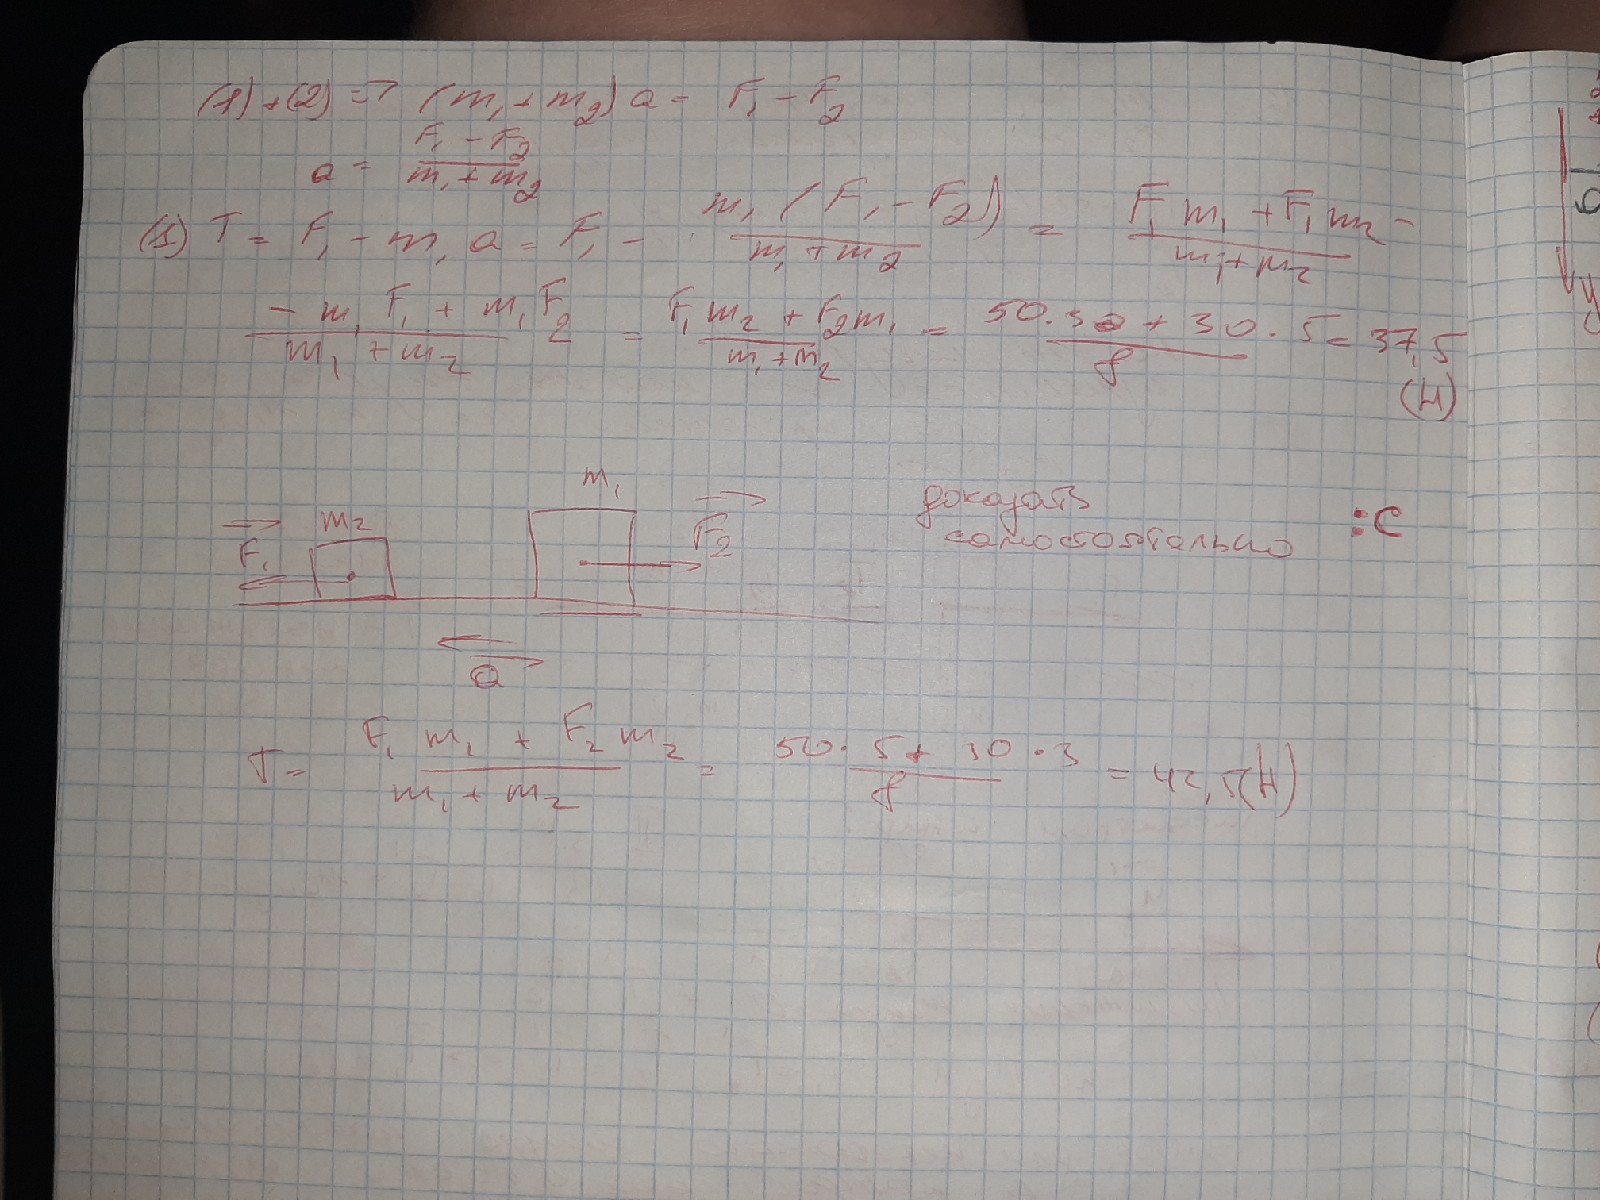 (1)+(2) => (m₁+m₂)a = F₁ - F₂
a = (F₁ - F₂)/(m₁+m₂)
(1) T = F₁ - m₁a = F₁ - m₁(F₁-F₂)/(m₁+m₂) = (F₁m₁+F₁m₂ -)/(m₁+m₂)
(- m₁F₁ + m₁F₂)/(m₁+m₂) = (F₁m₂ + F₂m₁)/(m₁+m₂) = (50·30 + 30·5)/8 = 37,5
(Н)
m₁
m₂
F₁
F₂
доказать
самостоятельно :C
a
T = (F₁m₁ + F₂m₂)/(m₁+m₂) = (50·5+30·3)/8 = 42,5(Н)